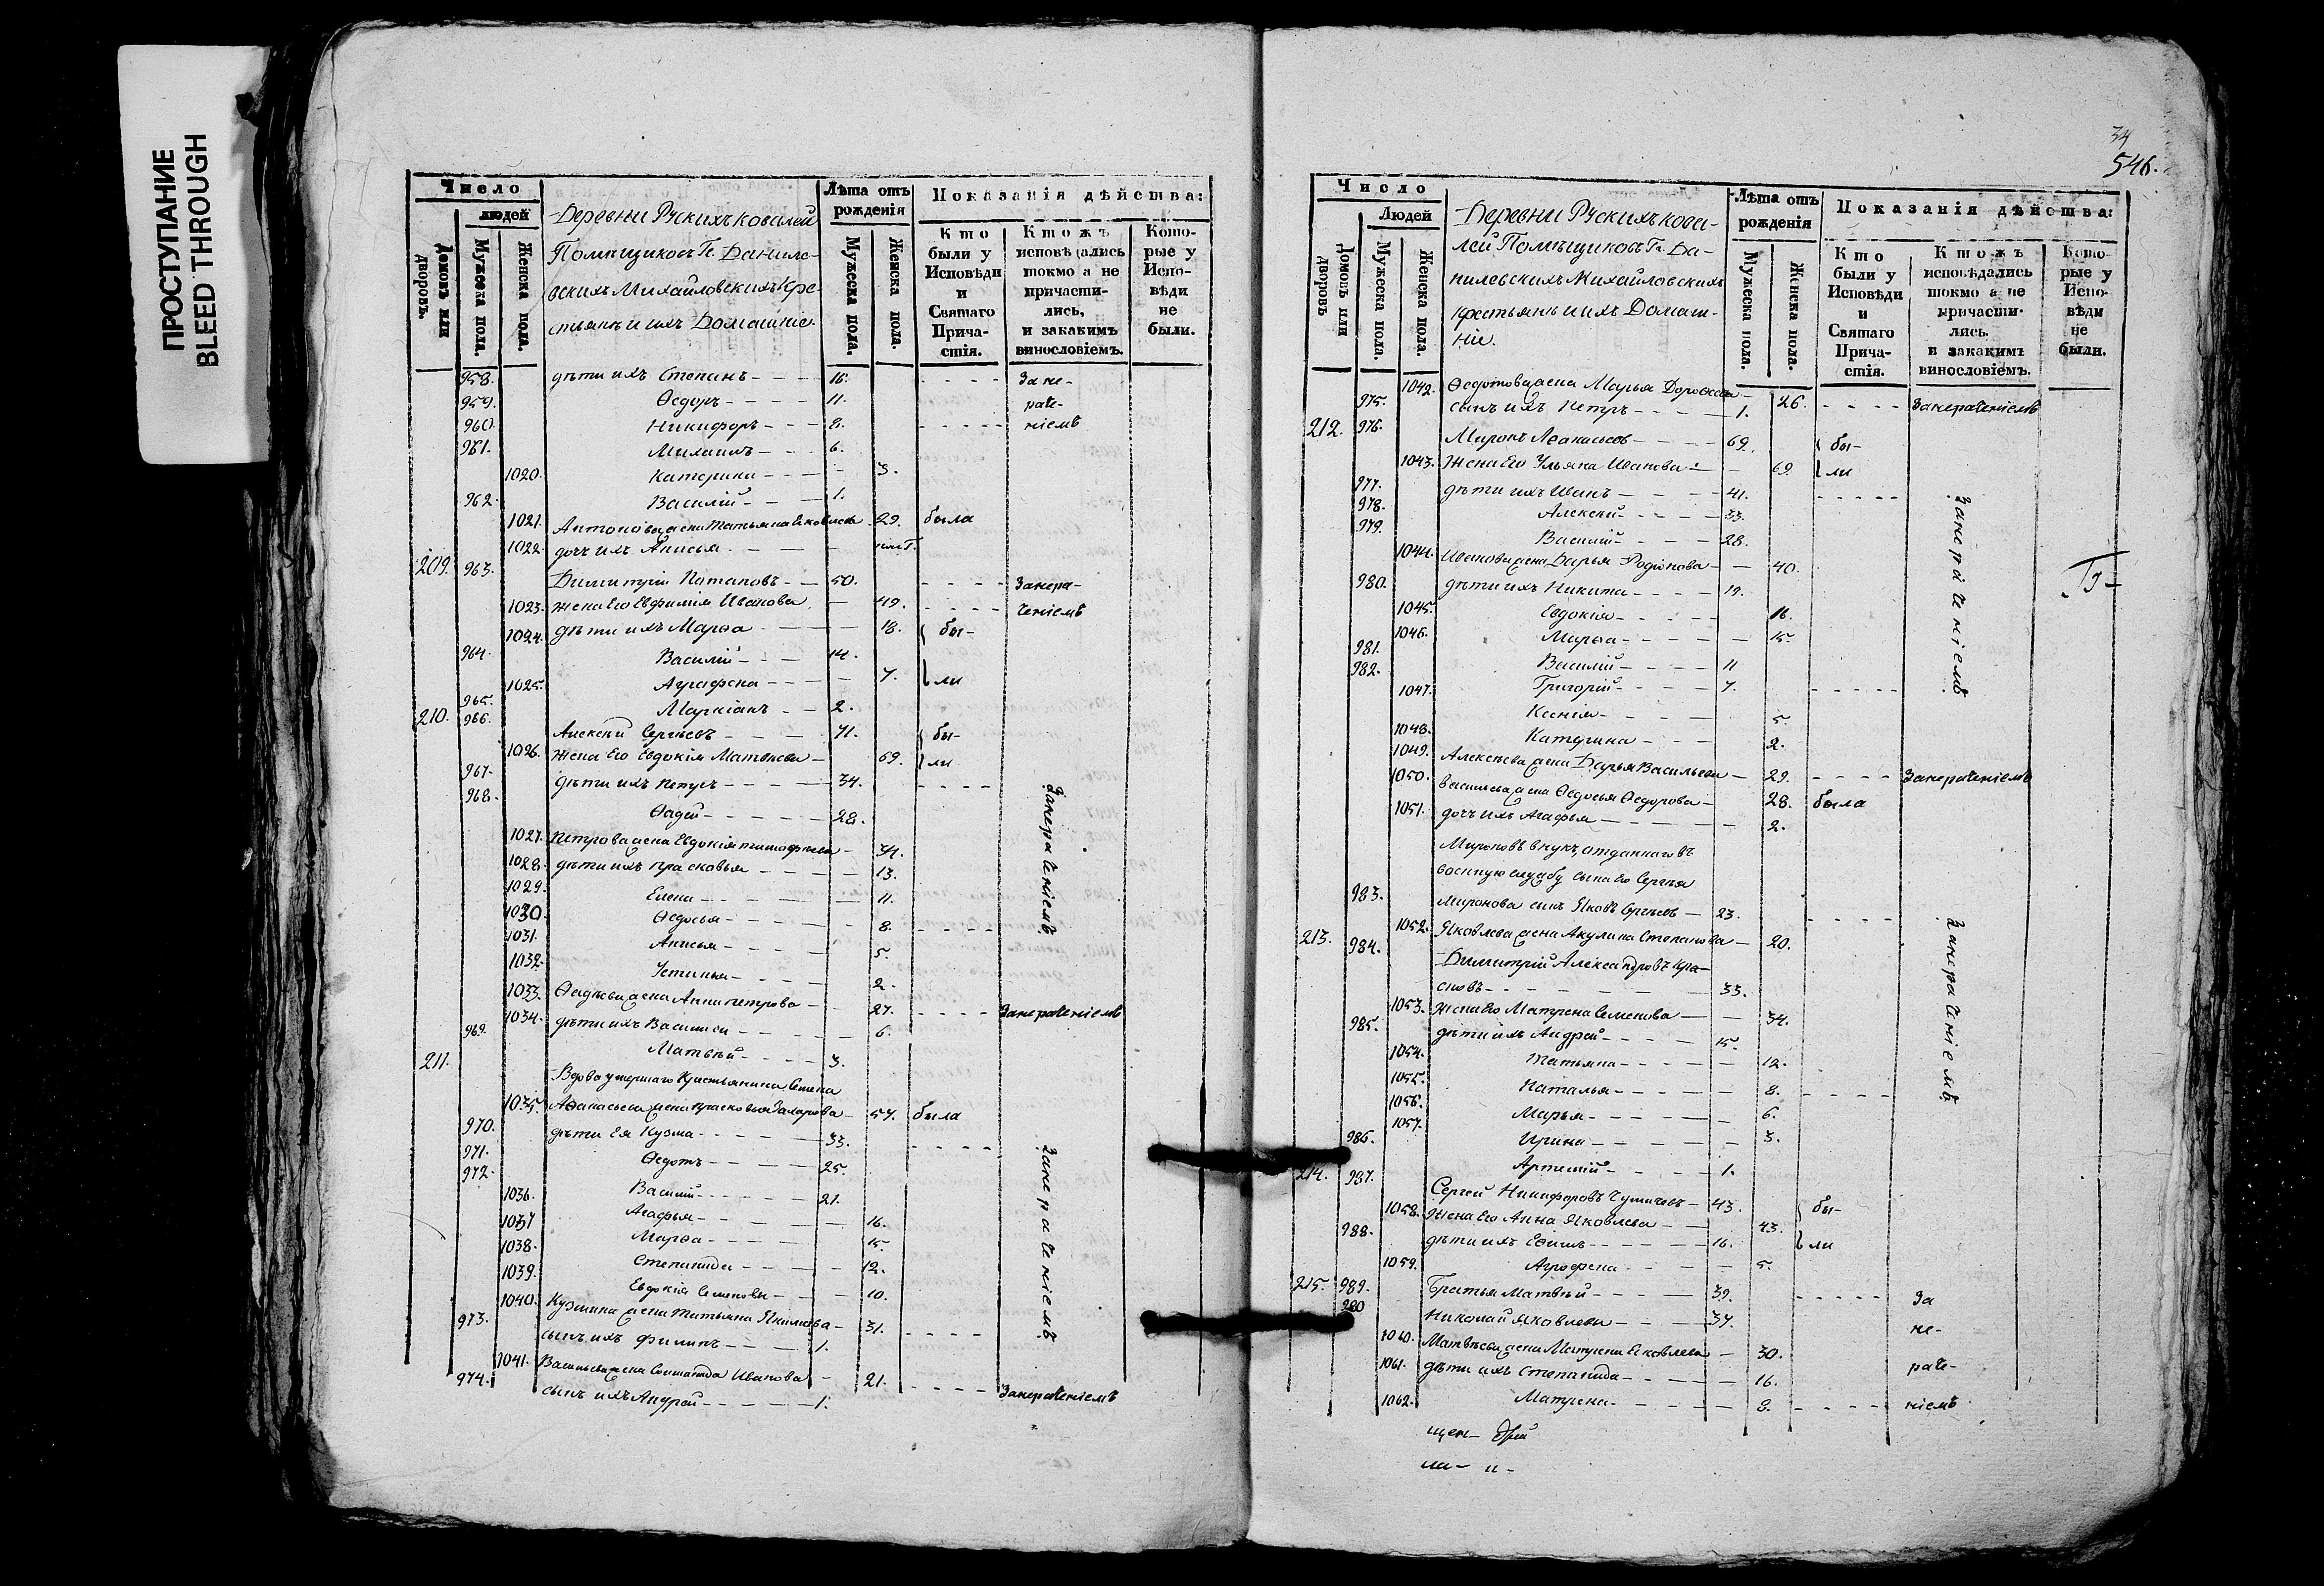 ПРОСТУПАНИЕ
BLEED THROUGH
Число
людей
Домовъ или дворовъ.
Мужеска пола.
Женска пола.
Деревни Рускихъ Ковалей
Помѣщиковъ Гг. Данилев-
скихъ Михайловскихъ Кре-
стьянъ и ихъ Домашніе.
Лѣта отъ рожденія
Мужеска пола.
Женска пола.
Показанія дѣйства:
Кто были у Исповѣди и Святаго Прича-стія.
Ктожъ исповѣдались токмо а не причасти-лись, и закакимъ винословіемъ.
Кото-рые у Испо-вѣди не были.
958. дѣти ихъ Степанъ 16. За не-
959. Ѳедоръ 11. раче-
960. Никифоръ 8. ніемъ
961. Михаилъ 6.
1020. Катерина 3.
962. Василій 1.
1021. Антонова жена Татьяна Яковлева 29. была
1022. дочь ихъ Анисья пол Г.
209. 963. Димитрій Потаповъ 50. Занера-
1023. жена Его Евфимія Иванова 49. ченіемъ
1024. дѣти ихъ Марѳа 18. бы-
964. Василій 14.
1025. Аграфена 7. ли
965. Маркіанъ 2.
210. 966. Алексѣй Сергѣевъ 71. бы-
1026. Жена Его Евдокія Матвѣева 69. ли
967. дѣти ихъ Петръ 34.
968. Ѳадей 28.
Занераченіемъ
1027. Петрова жена Евдокія Тимофѣева 34.
1028. дѣти ихъ Прасковья 13.
1029. Елена 11.
1030. Ѳедосья 8.
1031. Анисья 5.
1032. Устинья 2.
1033. Ѳадѣева жена Анна Петрова 27. Занераченіемъ
1034. дѣти ихъ Василиса 6.
969. Матвѣй 3.
211. Вдова умершаго Крестьянина Семена
1035. Аѳанасьева жена Прасковья Захарова 57. была
970. дѣти Ея Кузма 33.
971. Ѳедотъ 25.
972. Василій 21.
Занераченіемъ
1036. Агафья 16.
1037 Марѳа 15.
1038. Степанида 12.
1039. Евдокія Семеновы 10.
1040. Кузмина жена Татьяна Якимова 31.
973. сынъ ихъ Филипъ 1.
1041. Васильева жена Соломанида Иванова 21.
974. сынъ ихъ Андрей 1. Занераченіемъ
34
546.
Число
Людей
Домовъ или дворовъ
Мужеска пола.
Женска пола.
Деревни Рускихъ Кова-
лей Помѣщиковъ Гг. Да-
нилевскихъ Михайловскихъ
крестьянъ и ихъ Домаш-
ніе.
Лѣта отъ рожденія
Мужеска пола.
Женска пола.
Показанія дѣйства:
Кто были у Исповѣди и Святаго Прича-стія.
Ктожъ исповѣдались токмо а не причасти-лись. и закакимъ винословіемъ.
Кото-рые у Испо-вѣди не были.
1042. Ѳедотова жена Марья Дороѳеева 26. Занераченіемъ
975. сынъ ихъ Петръ 1.
212. 976. Миронъ Аѳанасьевъ 69. бы-
1043. Жена Его Ульяна Иванова 69. ли
977. дѣти ихъ Иванъ 41.
978. Алексѣй 33.
979. Василій 28.
Занераченіемъ
1044. Иванова жена Дарья Родіонова 40.
980. дѣти ихъ Никита 19.
1045. Евдокія 16.
1046. Марѳа 15.
981. Василій 11
982. Григорій 7.
1047. Ксенія 5.
1048. Катерина 2.
1049. Алексѣева жена Дарья Васильева 29. Занераченіемъ
1050. Васильева жена Ѳедосья Ѳедорова 28. была
1051. дочь ихъ Агафья 2.
Мироновъ внукъ, отданнаго въ
военную службу сына Его Сергѣя
983. Миронова сынъ Яковъ Сергѣевъ 23.
1052. Яковлева жена Акулина Степанова 20.
213. 984. Димитрій Александровъ Кра-
сновъ 33.
Занераченіемъ
1053. Жена Его Матрена Семенова 34.
985. дѣти ихъ Андрей 15.
1054. Татьяна 12.
1055. Наталья 8.
1056. Марья 6.
1057. Ирина 3.
986. Артемій 1.
214. 987. Сергей Никифоровъ 43. бы-
1058. Жена Его Анна Яковлева 43.
988. дѣти ихъ Ефимъ 16. ли
1059. Аграфена 5.
215. 989. Братья Матвѣй 39. За
990 Николай Яковлевы 37. не-
1060. Матвѣева жена Матрена Яковлева 30.
1061. дѣти ихъ Степанида 16. раче-
1062. Матрена 8. ніемъ